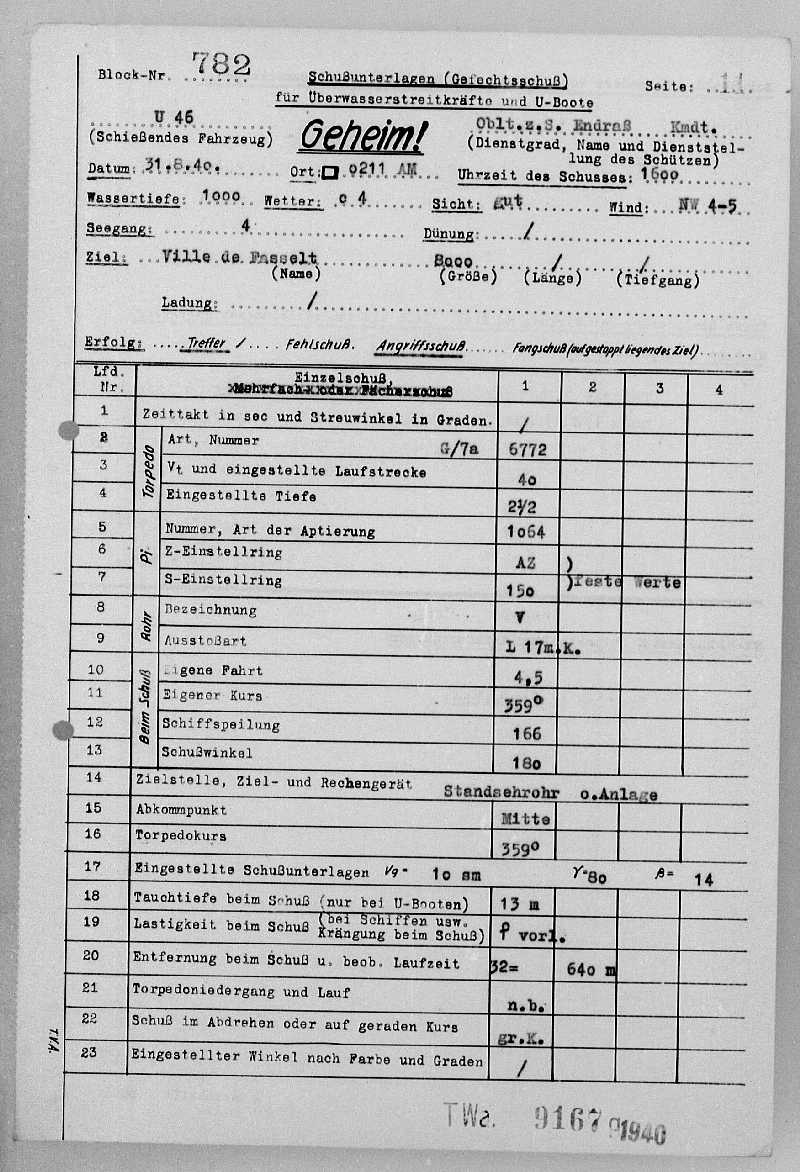 Block-Nr. 782
Schußunterlagen (Gefechtsschuß)
für Überwasserstreitkräfte und U-Boote
Seite: 11.
U 46
(Schießendes Fahrzeug)
Geheim!
Oblt.z.S. Endraß Kmdt.
(Dienstgrad, Name und Dienststel-
lung des Schützen)
Datum: 31.8.40. Ort: 0211 AM Uhrzeit des Schusses: 1600
Wassertiefe: 1000 Wetter: c 4 Sicht: gut Wind: NW 4-5
Seegang: 4 Dünung: /
Ziel: Ville de Hasselt 8000 / /
(Name) (Größe) (Länge) (Tiefgang)
Ladung: /
Erfolg: Treffer / Fehlschuß. Angriffsschuß Fangschuß (aufgestoppt liegendes Ziel)
Lfd. Nr. Einzelschuß, Mehrfach- oder Fächerschuß 1 2 3 4
1 Zeittakt in sec und Streuwinkel in Graden. /
Torpedo
2 Art, Nummer G/7a 6772
3 Vt und eingestellte Laufstrecke 40
4 Eingestellte Tiefe 2 1/2
Pi
5 Nummer, Art der Aptierung 1064
6 Z-Einstellring AZ )
7 S-Einstellring 150 )feste Werte
Rohr
8 Bezeichnung V
9 Ausstoßart L 17m.K.
Beim Schuß
10 Eigene Fahrt 4,5
11 Eigener Kurs 359°
12 Schiffspeilung 166
13 Schußwinkel 180
14 Zielstelle, Ziel- und Rechengerät Standsehrohr o.Anlage
15 Abkommpunkt Mitte
16 Torpedokurs 359°
17 Eingestellte Schußunterlagen Vg = 10 sm γ= 80 β= 14
18 Tauchtiefe beim Schuß (nur bei U-Booten) 13 m
19 Lastigkeit beim Schuß (bei Schiffen usw. Krängung beim Schuß) vorl.
20 Entfernung beim Schuß u. beob. Laufzeit 32= 640 m
21 Torpedoniedergang und Lauf n.b.
22 Schuß im Abdrehen oder auf geraden Kurs gr.K.
23 Eingestellter Winkel nach Farbe und Graden /
TVA.
TWa. 9167 g 1940